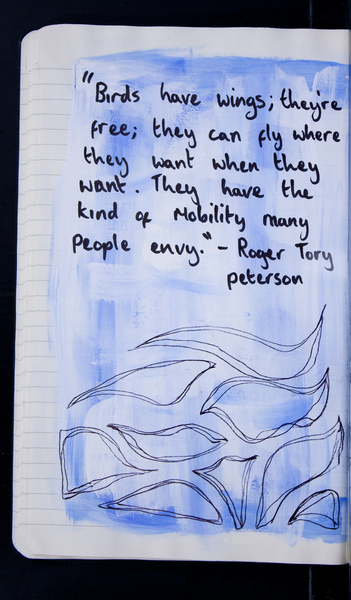 "Birds have wings; they're
free; they can fly where
they want when they
want. They have the
kind of Mobility many
People envy." - Roger Tory
peterson